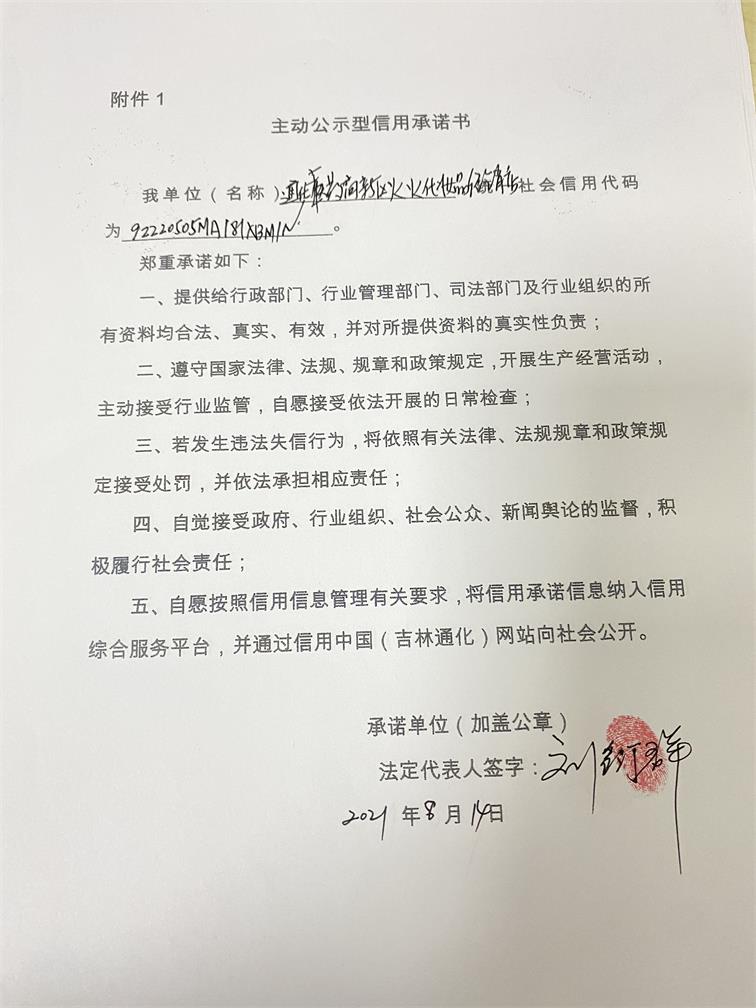 附件 1
主动公示型信用承诺书
我单位（名称）通化 社会信用代码
为 92220505MA181XBM1N 。
郑重承诺如下：
一、提供给行政部门、行业管理部门、司法部门及行业组织的所
有资料均合法、真实、有效，并对所提供资料的真实性负责；
二、遵守国家法律、法规、规章和政策规定，开展生产经营活动，
主动接受行业监管，自愿接受依法开展的日常检查；
三、若发生违法失信行为，将依照有关法律、法规规章和政策规
定接受处罚，并依法承担相应责任；
四、自觉接受政府、行业组织、社会公众、新闻舆论的监督，积
极履行社会责任；
五、自愿按照信用信息管理有关要求，将信用承诺信息纳入信用
综合服务平台，并通过信用中国（吉林通化）网站向社会公开。
承诺单位（加盖公章）
法定代表人签字：刘
2021 年 8 月 14日